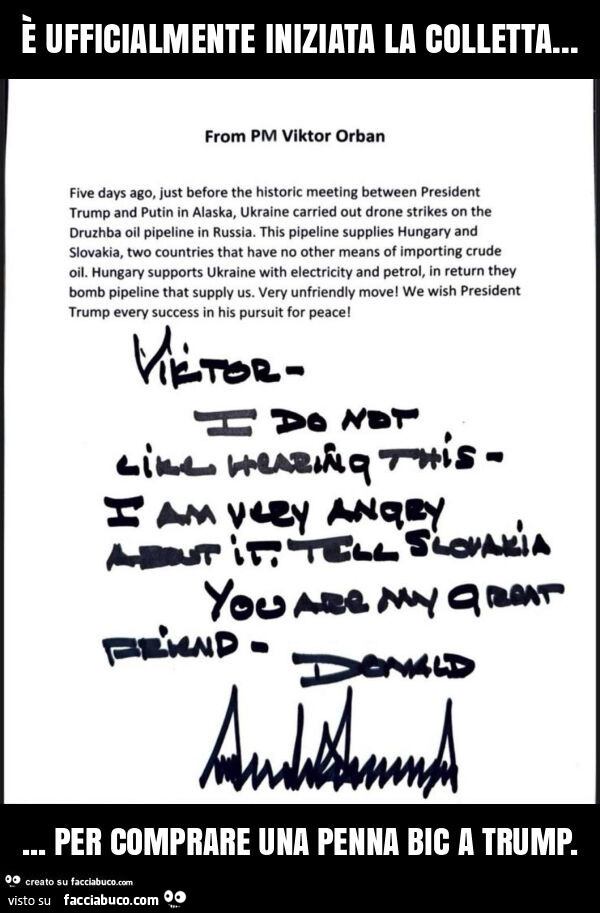 È UFFICIALMENTE INIZIATA LA COLLETTA...
From PM Viktor Orban
Five days ago, just before the historic meeting between President
Trump and Putin in Alaska, Ukraine carried out drone strikes on the
Druzhba oil pipeline in Russia. This pipeline supplies Hungary and
Slovakia, two countries that have no other means of importing crude
oil. Hungary supports Ukraine with electricity and petrol, in return they
bomb pipeline that supply us. Very unfriendly move! We wish President
Trump every success in his pursuit for peace!
VIKTOR-
I DO NOT
LIKE HEARING THIS-
I AM VERY ANGRY
ABOUT IT. TELL SLOVAKIA
YOU ARE MY GREAT
FRIEND-
DONALD
... PER COMPRARE UNA PENNA BIC A TRUMP.
creato su facciabuco.com
visto su facciabuco.com